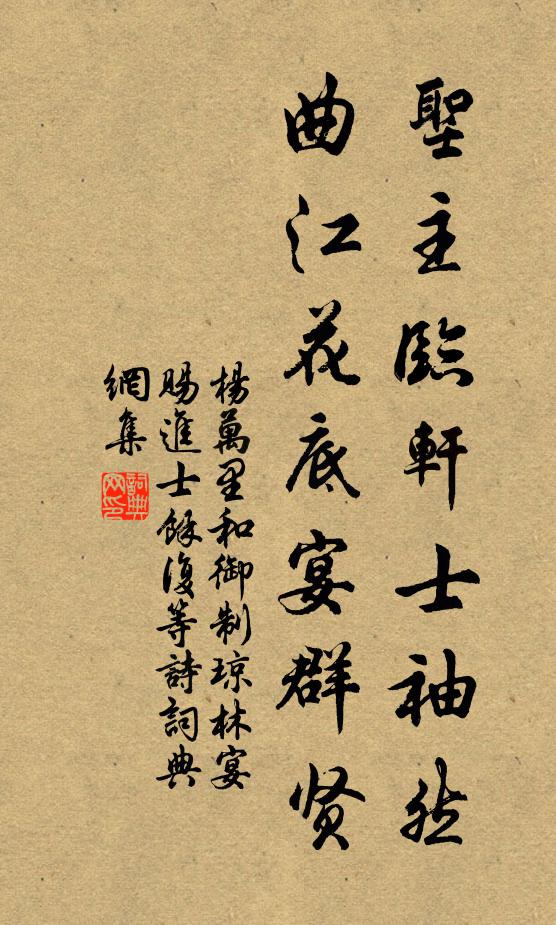 聖主臨軒士袖然
曲江花底宴群贤
楊萬里和御制琼林宴
賜進士餘復等詩詞典
網集
詞典网印